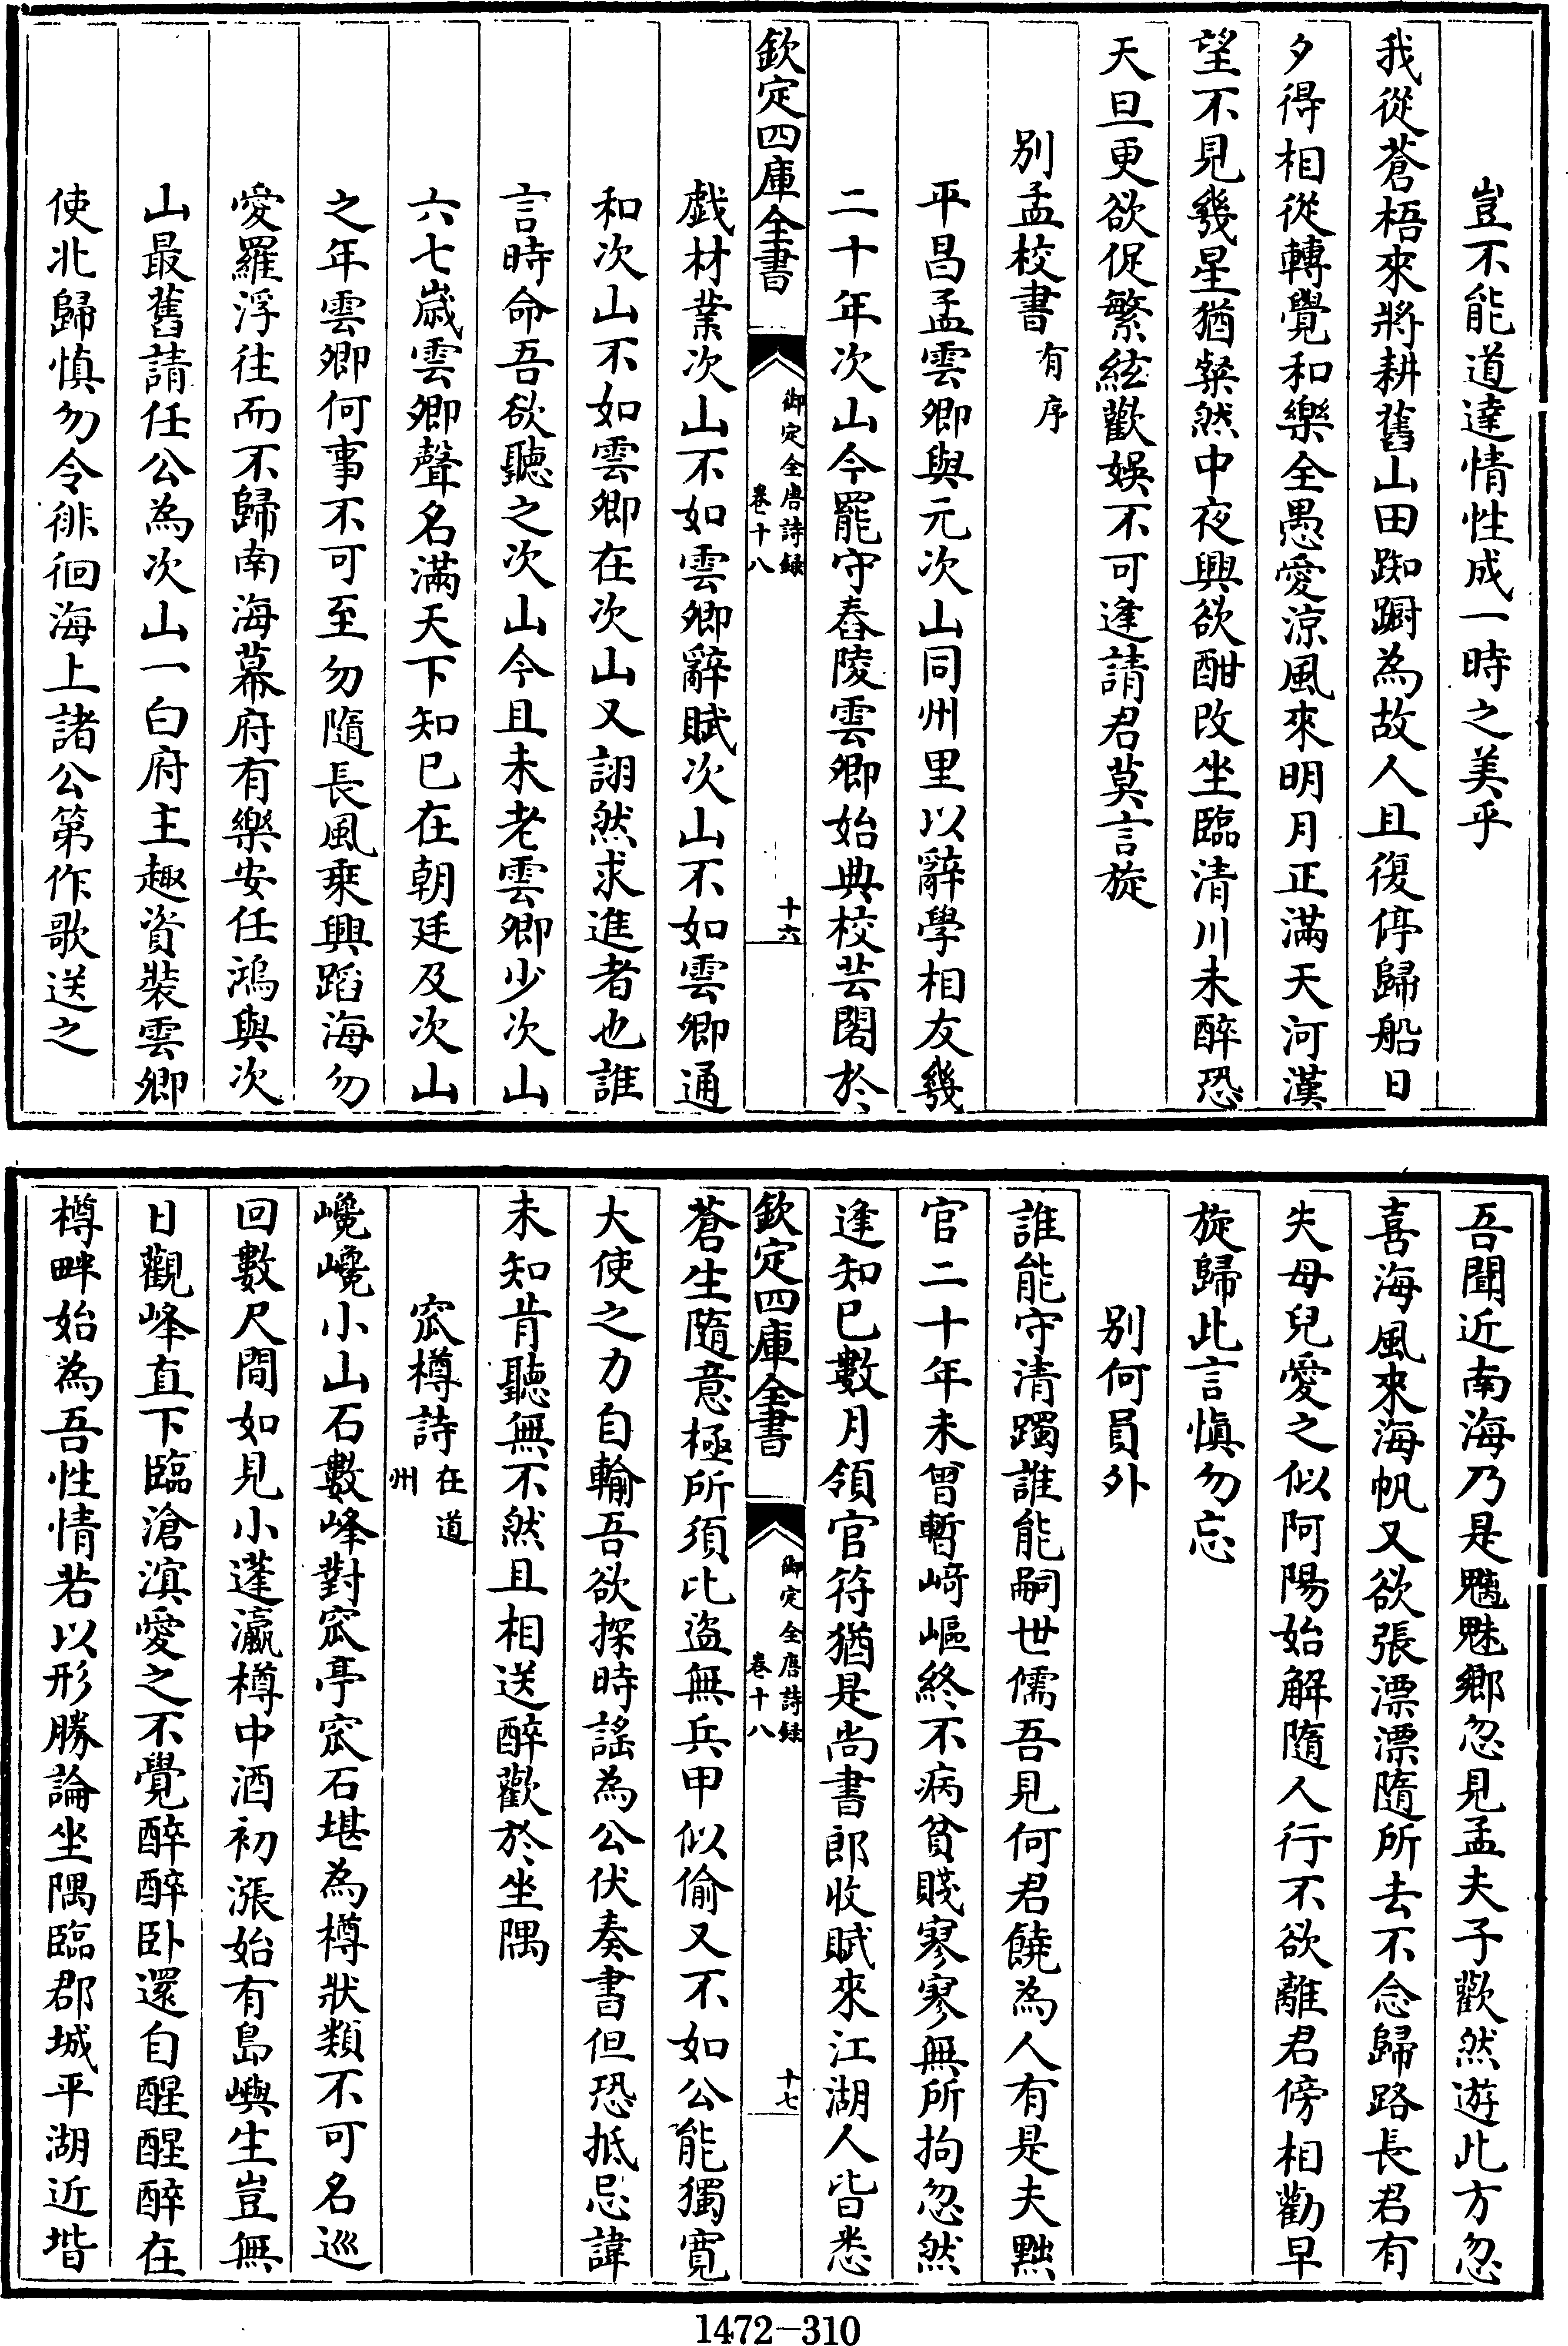 豈不能道達情性成一時之美乎
我從蒼梧來將耕舊山田踟蹰為故人且復停歸船日
夕得相從轉覺和樂全愚愛涼風來明月正滿天河漢
望不見幾星猶粲然中夜興欲酣改坐臨清川未醉恐
天旦更欲促繁絃歡娛不可逢請君莫言旋
別孟校書有序
平昌孟雲卿與元次山同州里以辭學相友幾
二十年次山今罷守舂陵雲卿始典校芸閣於
欽定四庫全書 御定全唐詩録 卷十八 十六
戲材業次山不如雲卿辭賦次山不如雲卿通
和次山不如雲卿在次山又詡然求進者也誰
言時命吾欲聽之次山今且未老雲卿少次山
六七歲雲卿聲名滿天下知已在朝廷及次山
之年雲卿何事不可至勿隨長風乘興蹈海勿
愛羅浮往而不歸南海幕府有樂安任鴻與次
山最舊請任公為次山一白府主趣資裝雲卿
使北歸慎勿令徘徊海上諸公第作歌送之
吾聞近南海乃是魑魅鄉忽見孟夫子歡然遊此方忽
喜海風來海帆又欲張漂漂隨所去不念歸路長君有
失母兒愛之似阿陽始解隨人行不欲離君傍相勸早
旋歸此言慎勿忘
別何員外
誰能守清躅誰能嗣世儒吾見何君饒為人有是夫黜
官二十年未曾暫崎嶇終不病貧賤寥寥無所拘忽然
逢知已數月領官符猶是尚書郎收賦來江湖人皆悉
欽定四庫全書 御定全唐詩録 卷十八 十七
蒼生隨意極所須比盜無兵甲似偷又不如公能獨寛
大使之力自輸吾欲探時謠為公伏奏書但恐抵忌諱
未知肯聽無不然且相送醉歡於坐隅
窊樽詩在道州
巉巉小山石數峰對窊亭窊石堪為樽狀類不可名巡
回數尺間如見小蓬瀛樽中酒初漲始有島嶼生豈無
日觀峰直下臨滄溟愛之不覺醉醉卧還自醒醒醉在
樽畔始為吾性情若以形勝論坐隅臨郡城平湖近堦
1472-310